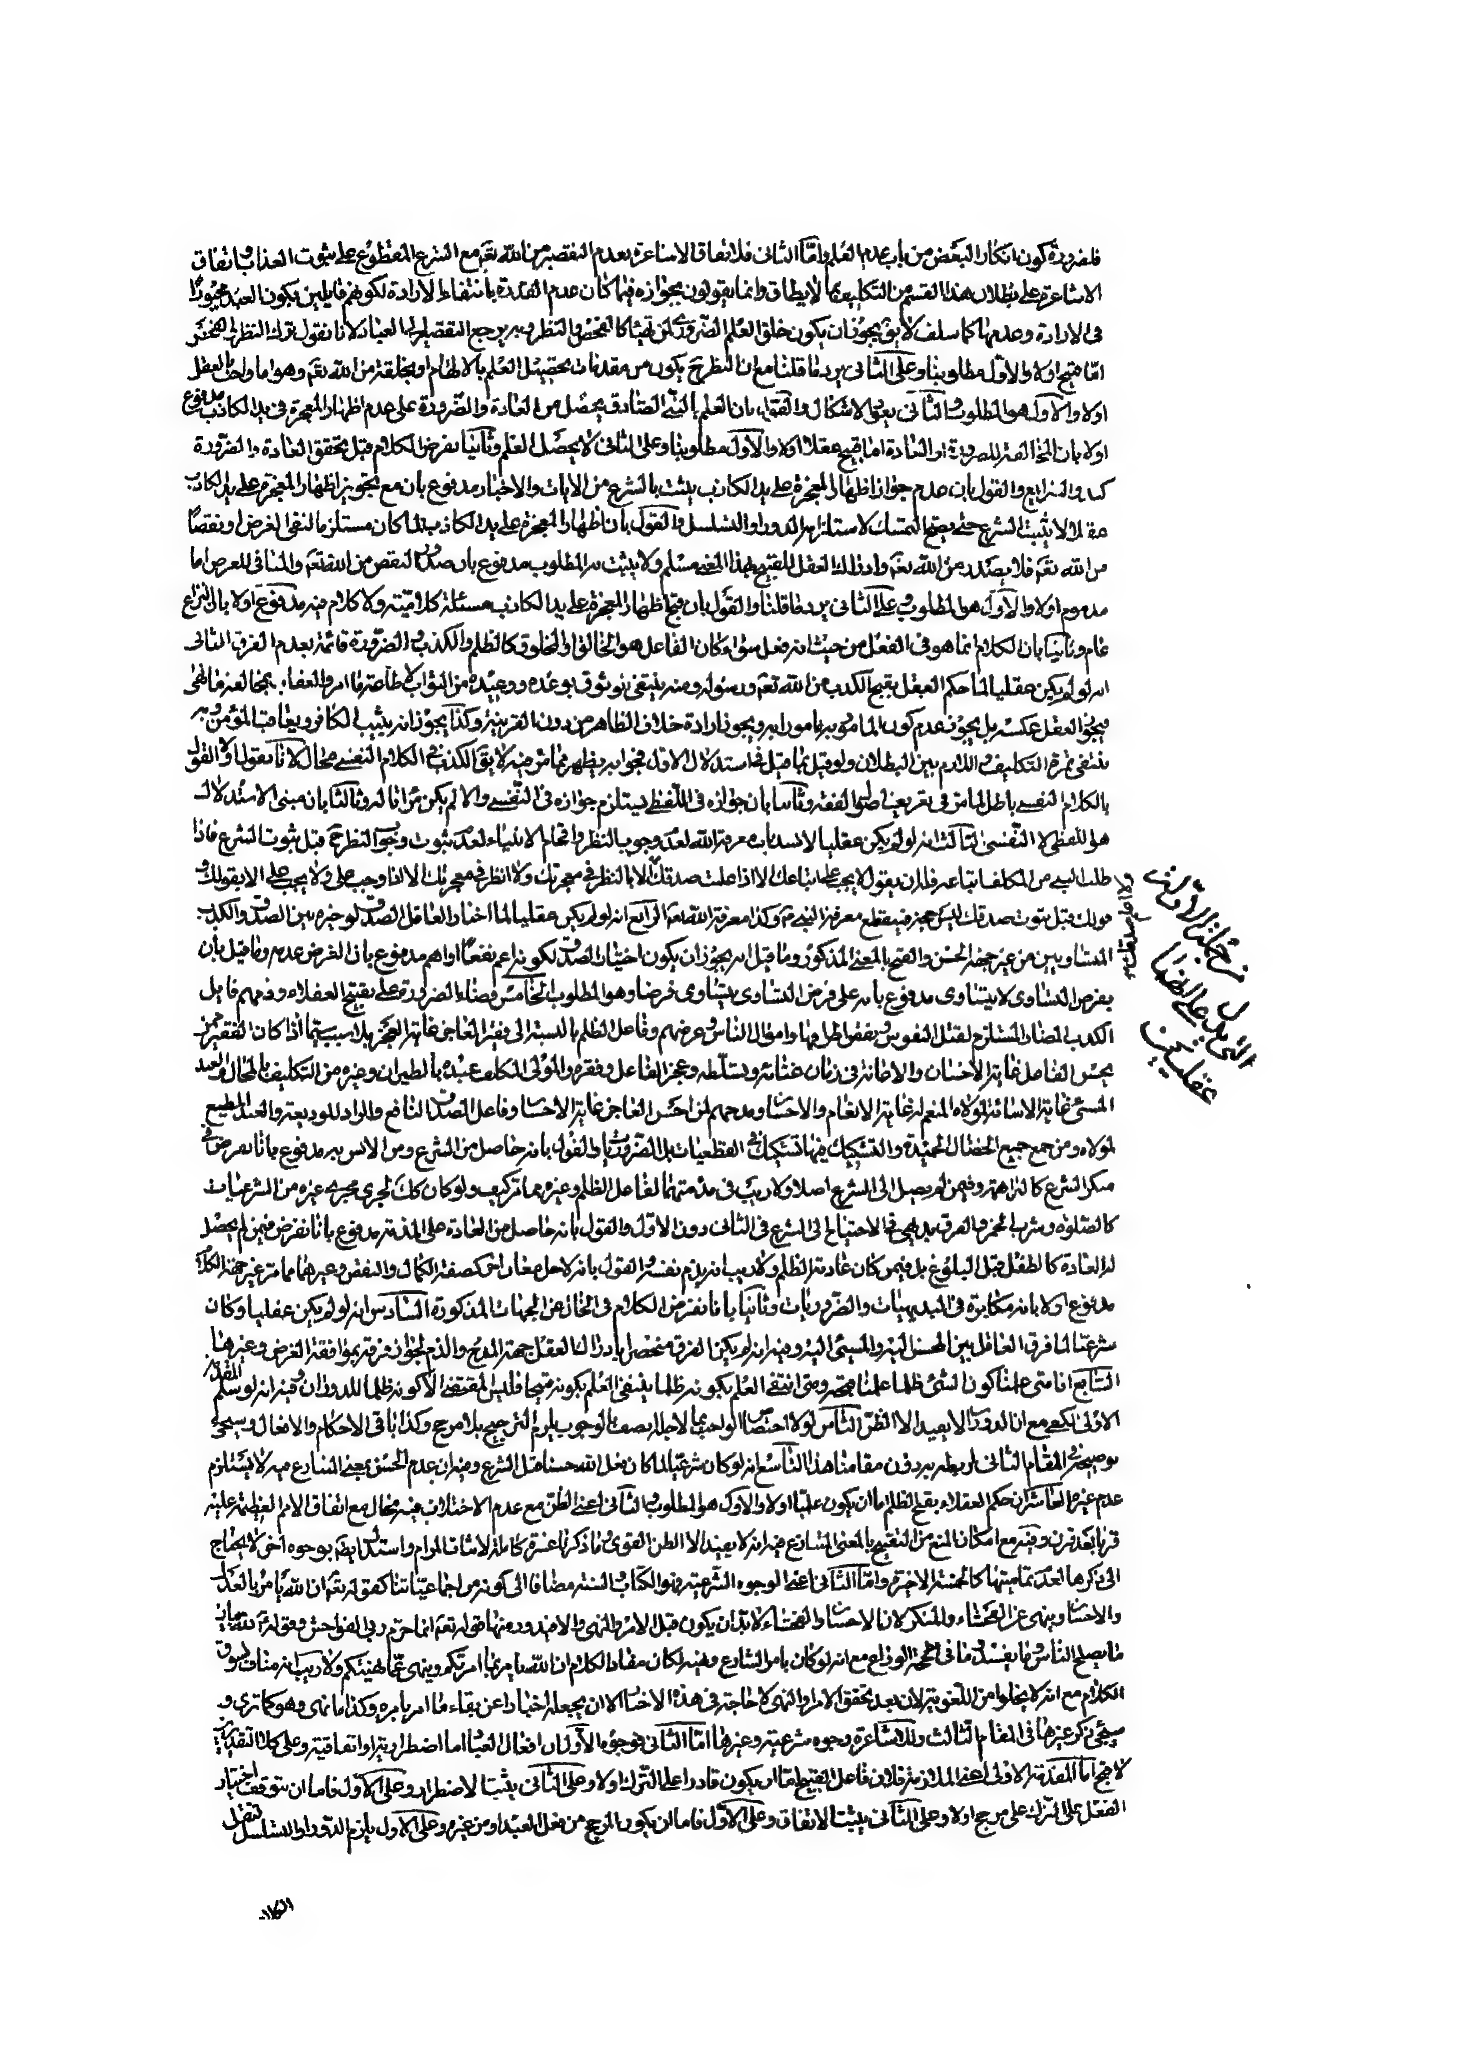 فلضرورة كون انكار البعض من باب عدم العلم واما الثانى فلاتفاق الاشاعرة بعدم التقصير من الله تعم مع الشرع المقطوع على ثبوت العذاب واتفاق
الاشاعرة على بطلان هذا القسم من التكليف بما لا يطاق وانما يقولون بجوازه فيما كان عدم القدرة بانتفاء الارادة لكونهم قايلين بكون العبد مجبورا
فى الارادة وعدمها كما سلف لا يق يجوز ان يكون خلق العلم الضرورى لمن تصدى الفحص والنظر وبه يرجع التقصير الى العباد لانا نقول ترك النظر
اما قبيح اولا والاول مطلوبنا وعلى الثانى يرد ما قلنا مع ان النظر ح يكون من مقدمات تحصيل العلم بالالهام او بخلقه من الله تعم وهو اما واجب بالعقل
اولا والاول هو المطلوب والثانى يعود الاشكال والقول بان العلم بالنبى الصادق يحصل من العادة والضرورة على عدم اظهار المعجزة فى يد الكاذب مدفوع
اولا بان المخالفة للضرورة او العادة اما قبيح عقلا اولا والاول مطلوبنا وعلى الثانى لا يحصل العلم وثانيا نفرض الكلام قبل تحقق العادة والضرورة
كبدو الشرايع والقول بان عدم جواز اظهار المعجزة على يد الكاذب يثبت بالشرع من الايات والاخبار مدفوع بان مع تجويز اظهار المعجزة على يد الكاذب
عقلا لا يثبت الشرع حتى يصح التمسك لاستلزامه الدور او التسلسل والقول بان اظهار المعجزة على يد الكاذب لما كان مستلزما لنفى الغرض او نقصا
من الله تعم فلا يصدر من الله تعم وادراك العقل القبيح بهذا المعنى مسلم ولا يثبت به المطلوب مدفوع بان صدور النقص من الله تعم والمنافى للغرض اما
مذموم اولا والاول هو المطلوب وعلى الثانى يرد ما قلنا والقول بان قبح اظهار المعجزة على يد الكاذب مسئلة كلامية ولا كلام فيه مدفوع اولا بان النزاع
عام وثانيا بان الكلام انما هو فى الفعل من حيث انه فعل سواء كان الفاعل هو الخالق او المخلوق كالظلم والكذب والضرورة قائمة بعدم الفرق الثانى
انه لو لم يكن عقليا لما حكم العقل بقبح الكذب من الله تعم ورسوله ومنه ينتفى الوثوق بوعده ووعيده من الثواب لاطاعته ما امر والعقاب بمخالفة ما نهى
ويجوز العقل عكسه بل يجوز عدم كون المامور به مامورا به ويجوز ارادة خلاف الظاهر من دون القرينة وكذا يجوز انه يثيب الكافر ويعاقب المؤمن وبه
ينتفى ثمرة التكليف واللازم بين البطلان ولو قيل بما قيل فى استدلال الاول فجوابه يظهر مما مر فيه لا يق الكذب فى الكلام النفسى محال لانا نقول اولا القول
بالكلام النفسى باطل لما مر فى تعريف اصول الفقه وثانيا بان جوازه فى اللفظى يستلزم جوازه فى النفسى والا لم يكن مرآتا له وثالثا بان مبنى الاستدلال
هو اللفظى لا النفسى الثالث انه لو لم يكن عقليا لانسد باب معرفة الله لعدم وجوب النظر وافحام الانبياء لعدم ثبوت وجوب النظر ح قبل ثبوت الشرع فاذا
طلب النبى من المكلف اتباعه فله ان يقول لا يجب على اتباعك الا اذا علمت صدقك ولا اعلم صدقك الا بالنظر فى معجزتك ولا انظر فى معجزتك الا اذا وجب على ولا يجب على الا بقولك و
قولك قبل ثبوت صدقك ليس حجة فينقطع معرفة النبى ص وكذا معرفة الله تعم الرابع انه لو لم يكن عقليا لما اختار العاقل الصدق لو خير بين الصدق والكذب
المتساويين من غير جهة الحسن والقبح بالمعنى المذكور وما قيل انه يجوز ان يكون اختيار الصدق لكونه اعم نفعا او اهم مدفوع بان الفرض عدمه وما قيل بان
بفرض التساوى لا يتساوى مدفوع بانه على فرض التساوى يتساوى فرضا وهو المطلوب الخامس قضاء الضرورة على تقبيح العقلاء وذمهم قايل
الكذب المضار المستلزم لقتل النفوس واموال الناس وعرضهم وفاعل الظلم بالنسبة الى الفقير العاجز غاية العجز بلا سبب سيما اذا كان الفقير ممن
يحسن الفاعل غاية الاحسان والاعانة فى زمان وتسلطه وعجز الفاعل وفقره والمولى المكلف عبده بالطيران وغيره من التكليف بالمحال والعبد
المسئ غاية الاسائة لمولاه المنعم له غاية الانعام والاحسان ومدحهم لمن احسن العاجز غاية الاحسان وفاعل الصدق النافع والراد للوديعة والعبد المطيع
لمولاه ومن جمع جميع الخصال الحميدة والتشكيك فيها تشكيك فى القطعيات بل الضروريات والقول بانه حاصل من الشرع ومن الانس به مدفوع بانا نفرض فى
منكر الشرع كالبراهمة وفيمن لم يصل الى الشرع اصلا ولا ريب فى مذمتهما لفاعل الظلم وغيره مما تر كيف ولو كان كك لجرى مجرى غيره من الشرعيات
كالصلوة وشرب الخمر والفرق بديهى فى الاحتياج الى الشرع فى الثانى دون الاول والقول بانه حاصل من العادة على المذمة مدفوع بانا نفرض فيمن لم يحصل
له العادة كالطفل قبل البلوغ بل فيمن كان عادته الظلم ولا ريب انه يذم نفسه والقول بانه لاجل معان اخر كصفة الكمال والنقص وغيرهما مما مر غير جهة الكلام
مدفوع اولا بانه مكابرة فى البديهيات والضروريات وثانيا بانا نفرض الكلام فى الخالى عن الجهات المذكورة السادس انه لو لم يكن عقليا وكان
شرعيا لما فرق العاقل بين المحسن اليه والمسيئ اليه وفيه انه لم يكن الفرق منحصرا بادراك العقل جهة المدح والذم لجواز فرقه بموافقة الغرض وغيرها
السابع انا متى علمنا كون الشئ ظلما علمنا قبحه ومتى انتفى العلم بكونه ظلما ينتفى العلم بكونه قبيحا فليس المقتضى الا كونه ظلما للدوران وفيه انه لو سلم المقدمة
الاولى لكفى مع ان الدوران لا يفيد الا الظن الثامن لولا اختصاص الواجب بما لاجله يصف بالوجوب يلزم الترجيح بلا مرجح وكذا باقى الاحكام والافعال وسيجئ
توضيحه فى المقام الثانى لربطه به دون مقامنا هذا التاسع انه لو كان شرعيا لما كان فعل الله حسنا قبل الشرع وفيه ان عدم الحسن بمعنى الشارع فيه لا يستلزم
عدم غيره العاشر ان حكم العقلاء بقبح الظلم اما ان يكون علميا اولا والاول هو المطلوب والثانى اعنى الظن مع عدم الاختلاف فيه محال مع اتفاق الامم العظيمة عليه
قرنا بعد قرن وفيه مع امكان المنع من التقبيح بالمعنى المتنازع فيه انه لا يفيد الا الظن القوى وما ذكرنا عشرة كاملة لاثبات المرام واستدل ايضم بوجوه اخر لا يحتاج
الى ذكرها لعدم تماميتها كالخمسة الاخيرة واما الثانى اعنى الوجوه الشرعية فهو الكتاب والسنة مضافا الى كونه من اجماعياتنا كقوله تعم ان الله يامر بالعدل
والاحسان وينهى عن الفحشاء والمنكر لان الاحسان والفحشاء لابد ان يكون قبل الامر والنهى والا فيدور ومنها قوله تعم انما حرم ربى الفواحش وقوله
ما يصلح الناس وما يفسد وما فى حجة الوداع مع انه لو كان بامر الشارع ونهيه لكان مفاد الكلام ان الله يامر بما امرتكم وينهى عما نهيتكم ولا ريب انه مناف لسوق
الكلام مع انه لا يخلوا من اللغوية لان بعد تحقق الامر والنهى لا حاجة فى هذا الاخبار الا ان يجعله اخبارا عن بقاء ما امر بامره وكذا ما نهى وهو كما ترى و
سيجئ ذكر غيرها فى المقام الثالث وللاشاعرة وجوه شرعية وغيرها اما الثانى فوجوه الاول ان افعال العباد اما اضطرارية او اتفاقية وعلى كلا التقديرين
لا قبح اما المقدمة الاولى اعنى الملازمة فلان فاعل القبيح اما ان يكون قادرا على الترك اولا وعلى الثانى يثبت الاضطرار وعلى الاول فاما ان يتوقف اختيار
الفعل على الترك على مرجح اولا وعلى الثانى يثبت الاتفاق وعلى الاول فاما ان يكون المرجح من فعل العبد او من غيره وعلى الاول يلزم الدور او التسلسل لنقل
الكلام